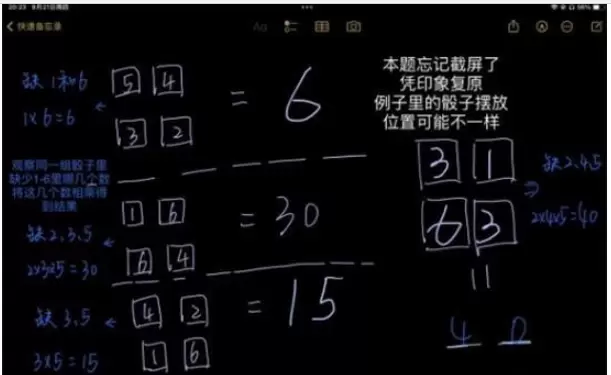 20:23 9月21日周四
56%
快速备忘录
Aa
缺1和6
1×6=6
5 4
3 2
= 6
本题忘记截屏了
凭印象复原
例子里的骰子摆放
位置可能不一样
观察同一组骰子里
缺少1-6里哪几个数
将这几个数相乘得
到结果
1 6
6 4
= 30
缺2,3,5
2×3×5=30
4 2
1 6
= 15
缺3,5
3×5=15
3 1
6 3
缺2,4,5
2×4×5=40
=
4 0